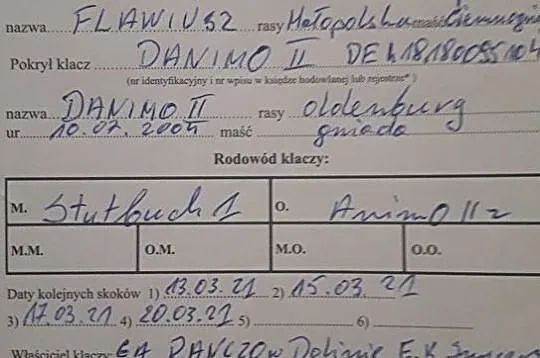 nazwa FLAWIUSZ rasy Małopolska maść Ciemnogniada
Pokrył klacz DANIMO II DE
(nr identyfikacyjny i nr wpisu w księdze hodowlanej lub rejestrze*)
nazwa DANIMO II rasy oldenburg
ur 10.07.2004 maść gniada
Rodowód klaczy:
M. Stutbuch 1 O. Animo II z
M.M. O.M. M.O. O.O.
Daty kolejnych skoków 1) 13.03.21 2) 15.03.21
3) 17.03.21 4) 20.03.21 5) 6)
Właściciel klaczy: Dolinie E.K